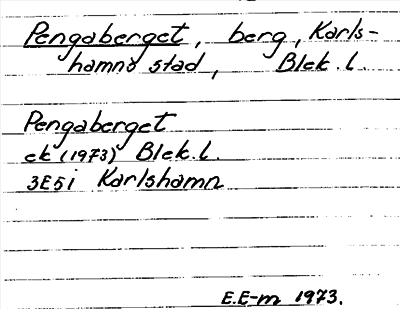 Pengaberget, berg, Karls-
hamns stad, Blek. l.
Pengaberget
ek (1973) Blek. l.
3E5i Karlshamn
E.E-m 1973.